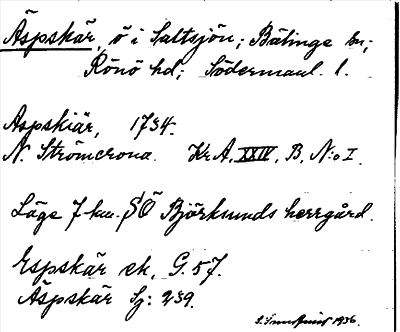 Äspskär, ö i Saltsjön; Bälinge sn;
Rönö hd; Södermanl. l.
Aspskiär, 1734.
N. Strömcrona. Kr. A. XXIV, B, N:o I.
Läge 7 km. SÖ Björksunds herrgård.
Espskär ek, G. 57.
Äspskär Sj: 239.
1936.